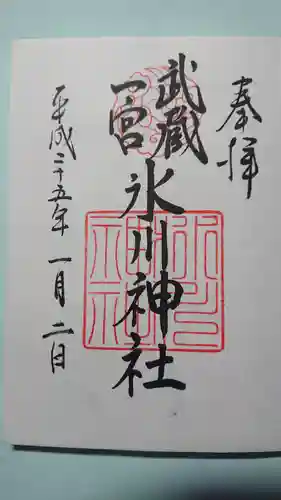 奉拝
武蔵
一宮
氷川神社
平成二十五年一月二日
氷川神社